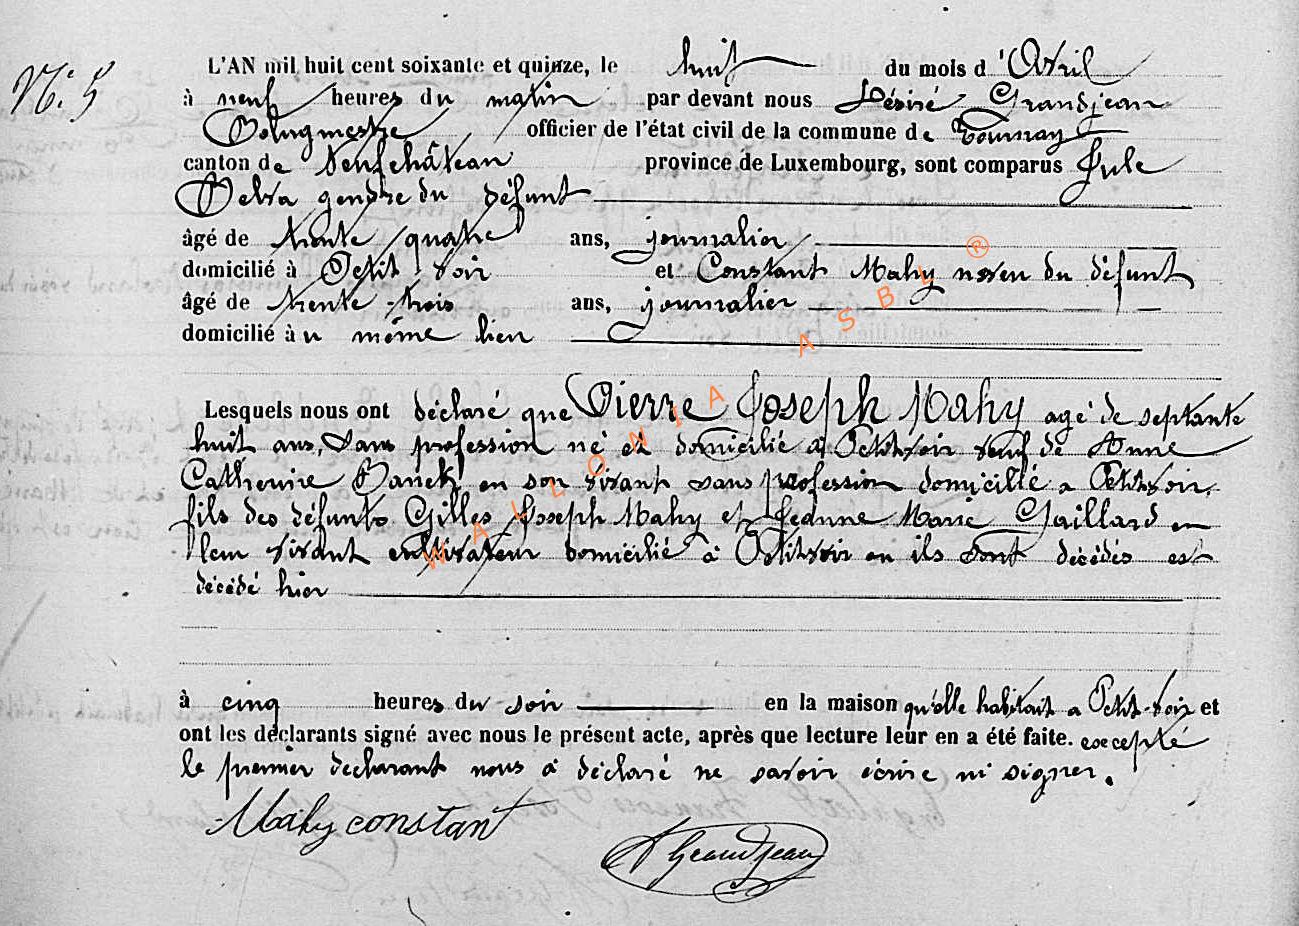 N° 5
L'AN mil huit cent soixante et quinze, le huit du mois d'Avril
à neuf heures du matin par devant nous Désiré Grandjean
Bourgmestre, officier de l'état civil de la commune de Tournay
canton de Neufchâteau province de Luxembourg, sont comparus Jule
Delva gendre du défunt
âgé de trente quatre ans, journalier
domicilié à Petit voir et Constant Mahy neveu du défunt
âgé de trente trois ans, journalier
domicilié au même lieu
Lesquels nous ont déclaré que Pierre Joseph Mahy agé de septante
huit ans, sans profession né et domicilié à Petitvoir veuf de Anne
Catherine en son vivant sans profession domicilié a Petitvoir,
fils des défunts Gilles Joseph Mahy et Jeanne Marie Gaillard en
leur vivant cultivateur domicilié à Petitvoir ou ils sont décédés est
décédé hier
à cinq heures du soir en la maison qu'elle habitait a Petit-voir et
ont les déclarants signé avec nous le présent acte, après que lecture leur en a été faite. excepté
le premier déclarant nous à déclaré ne savoir écrire ni signer.
Mahy constant
Grandjean
WALLONIA ASBL ®